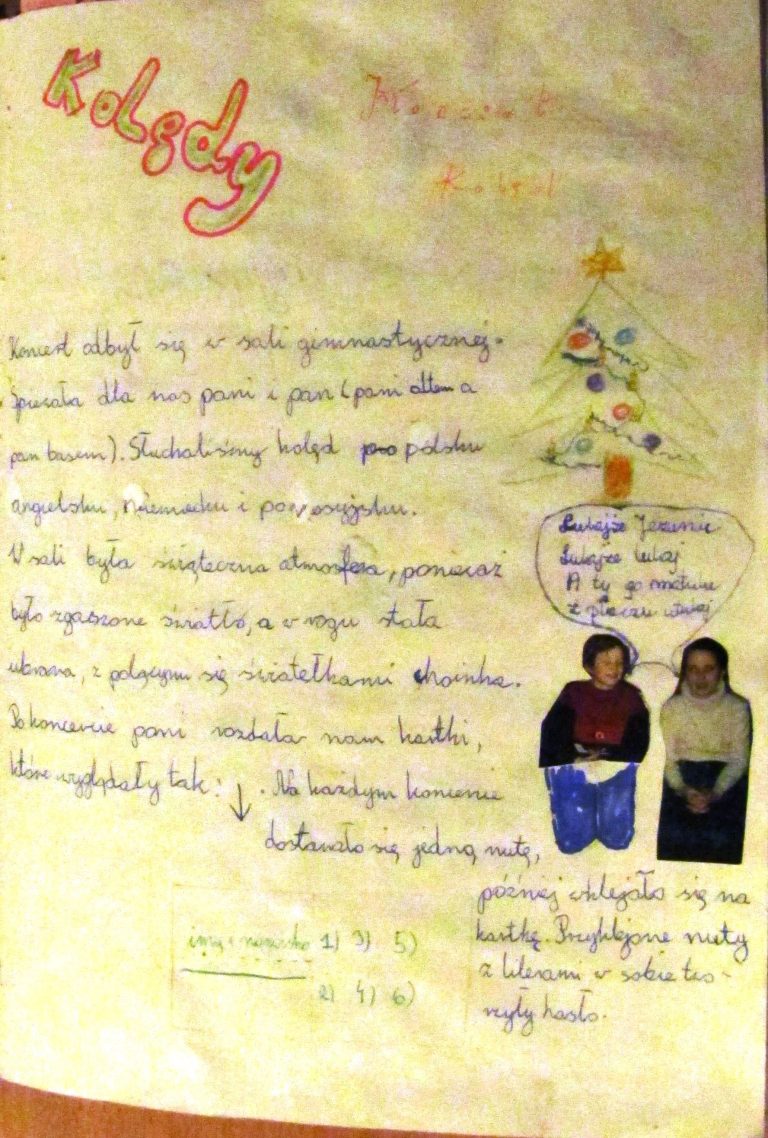 Kolędy
Koncert
Kolęd
Koncert odbył się w sali gimnastycznej.
Śpiewała dla nas pani i pan (pani altem a
pan basem). Słuchaliśmy kolęd po polsku
angielsku, niemiecku i po rosyjsku.
W sali była świąteczna atmosfera, ponieważ
było zgaszone światło, a w rogu stała
ubrana, z palącymi się światełkami choinka.
Po koncercie pani rozdała nam kartki,
które wyglądały tak: ↓. Na każdym koncercie
dostawało się jedną nutę,
później wklejało się na
kartkę. Przyklejone nuty
z literami w sobie two-
rzyły hasło.
Lulajże Jezuniu
Lulajże lulaj
A ty go matulu
z płaczu utulaj
imię i nazwisko 1) 3) 5)
2) 4) 6)